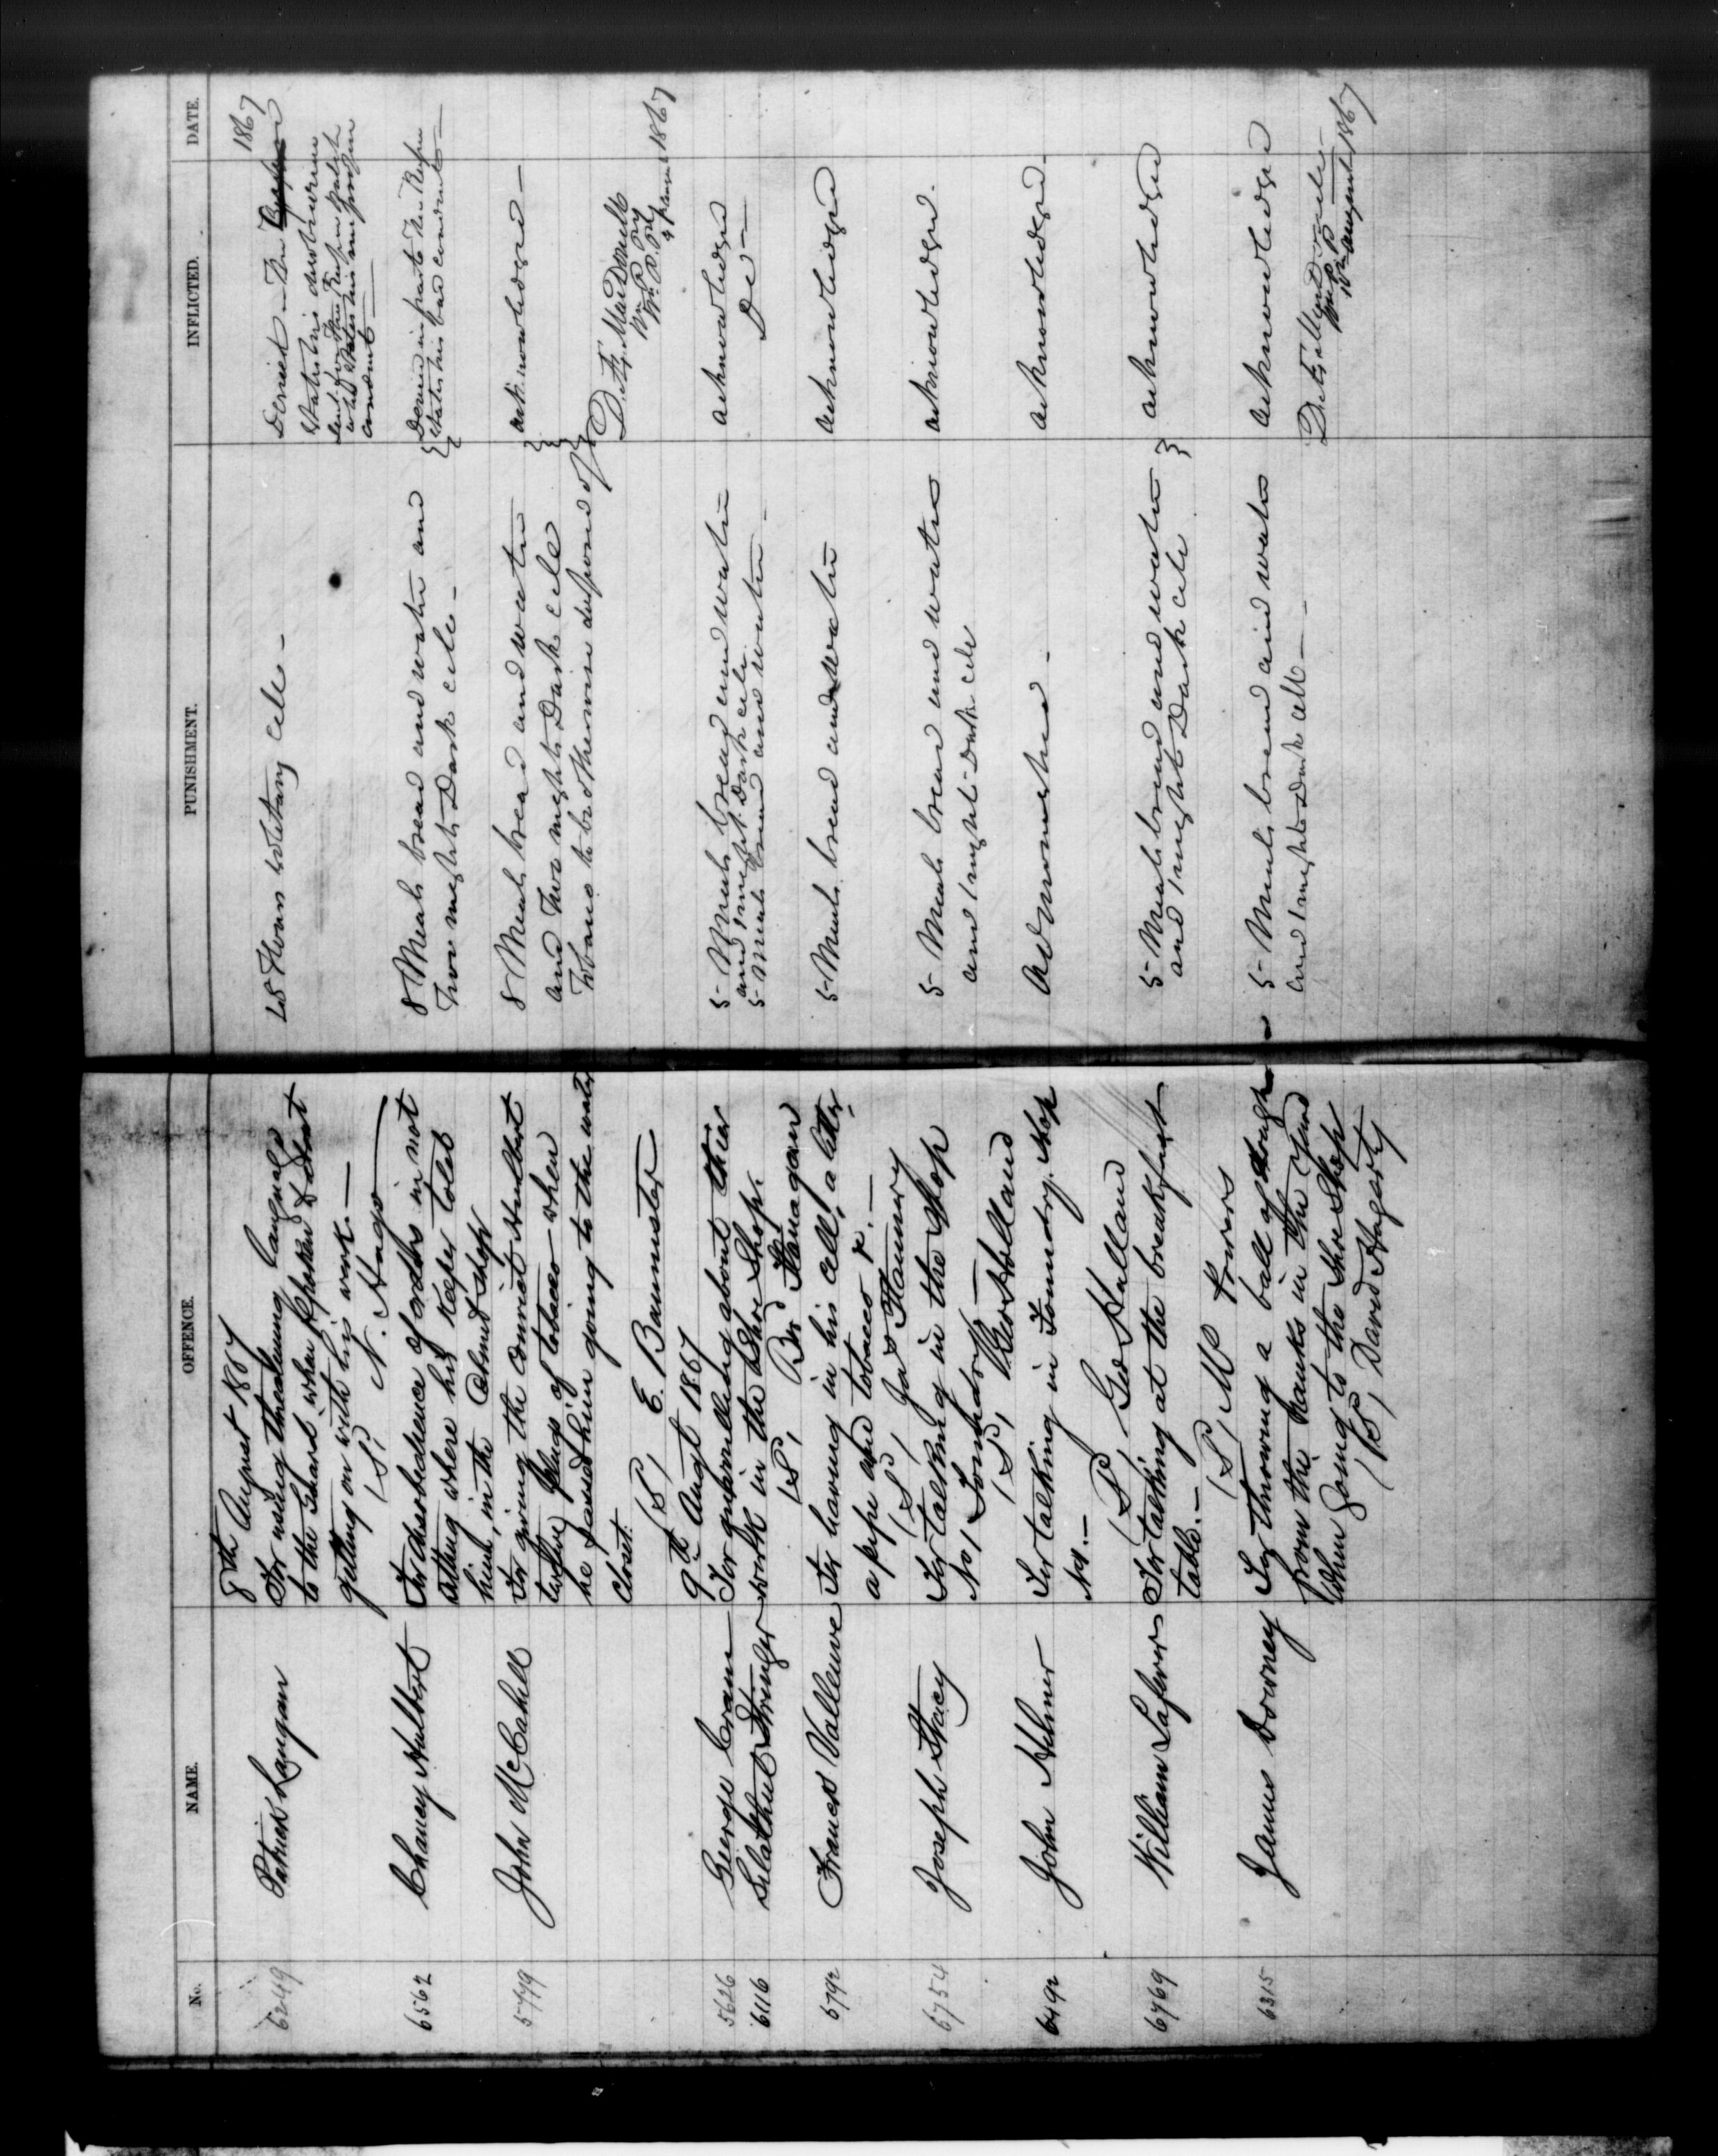 No. NAME. OFFENCE. PUNISHMENT. INFLICTED. DATE.
8th August 1867
1867
6249 Patrick Langan
For using threatening language
to the Guard when spoken to about
getting on with his work.—
(S) N. Hago
48 Hours solitary cell —
Denied — The
States his
conduct
6562 Chancey Hulbert
For disobedience of orders in not
sitting where his Keeper told
him, in the Cabinet Shop
8 Meals bread and water and
Two nights Dark cell —
Denied in part The Keeper
States his bad conduct —
5779 John McCahill
For giving the convict Hulbert
twelve plugs of tobacco when
he passed him going to the water
closet.
(S) E. Bannister
8 Meals bread and water
and Two nights Dark cell
Tobacco to be otherwise disposed of
acknowledged —
D. Æ. MacDonell
W. P. Py
9 August 1867
9th Augt 1867
5626 George Crane
6116 Selathiel Stringer
For quarrelling about their
work in the Shoe Shop.
(S) Bd Flanagan
5 Meals bread and water
and 1 night Dark cell
5 Meals bread and water —
acknowledged
Do —
6792 Francis Valleuve
For having in his cell, a letter,
a pipe and tobacco &.—
(S) Jas Flannery
5 Meals bread and water
acknowledged
6754 Joseph Stacy
For talking in the Shop
No 1 Foundry.—
(S) Geo Holland
5 Meals bread and water
and 1 night Dark cell
acknowledged.
6492 John Hilmer
For talking in Foundry Shop
No 1.—
(S) Geo Holland
Admonished —
acknowledged.
6769 William Lafevers
For talking at the breakfast
table.—
(S) M Powers
5 Meals bread and water
and 1 night Dark cell
acknowledged
6315 James Downey
For throwing a ball of dough
from the ranks in the Yard
when going to the Shoe Shop
(S) David Hagarty
5 Meals bread and water
and 1 night Dark cell —
acknowledged
10th August 1867